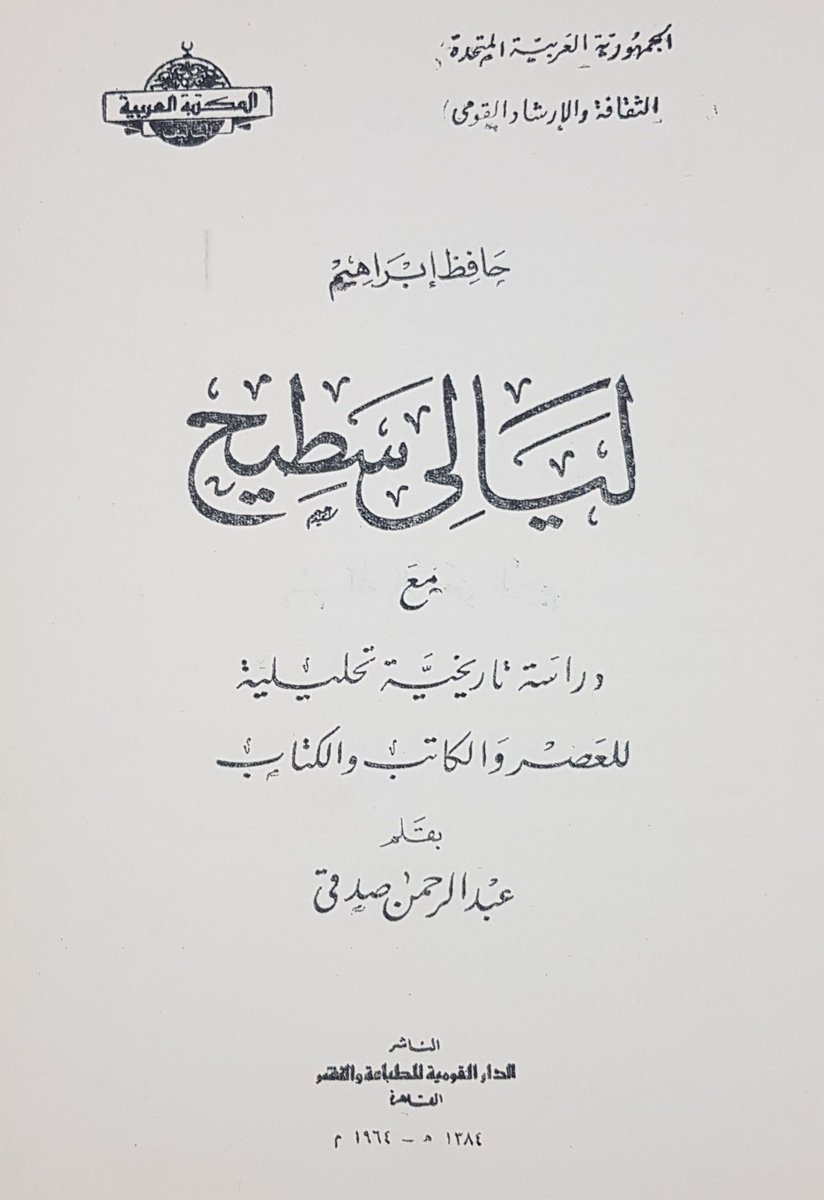 الجمهورية العربية المتحدة
الثقافة والإرشاد القومى
المكتبة العربية
حَافِظ إبْرَاهِيْم
لَيَالِي سَطِيح
مَعَ
دراسَة تاريخيَّة تحليلية
للعَصْر وَالكاتب والكتاب
بقَلم
عبْد الرحمن صدقى
الناشر
الدار القومية للطباعة والنشر
القاهرة
١٣٨٤ هـ - ١٩٦٤ م